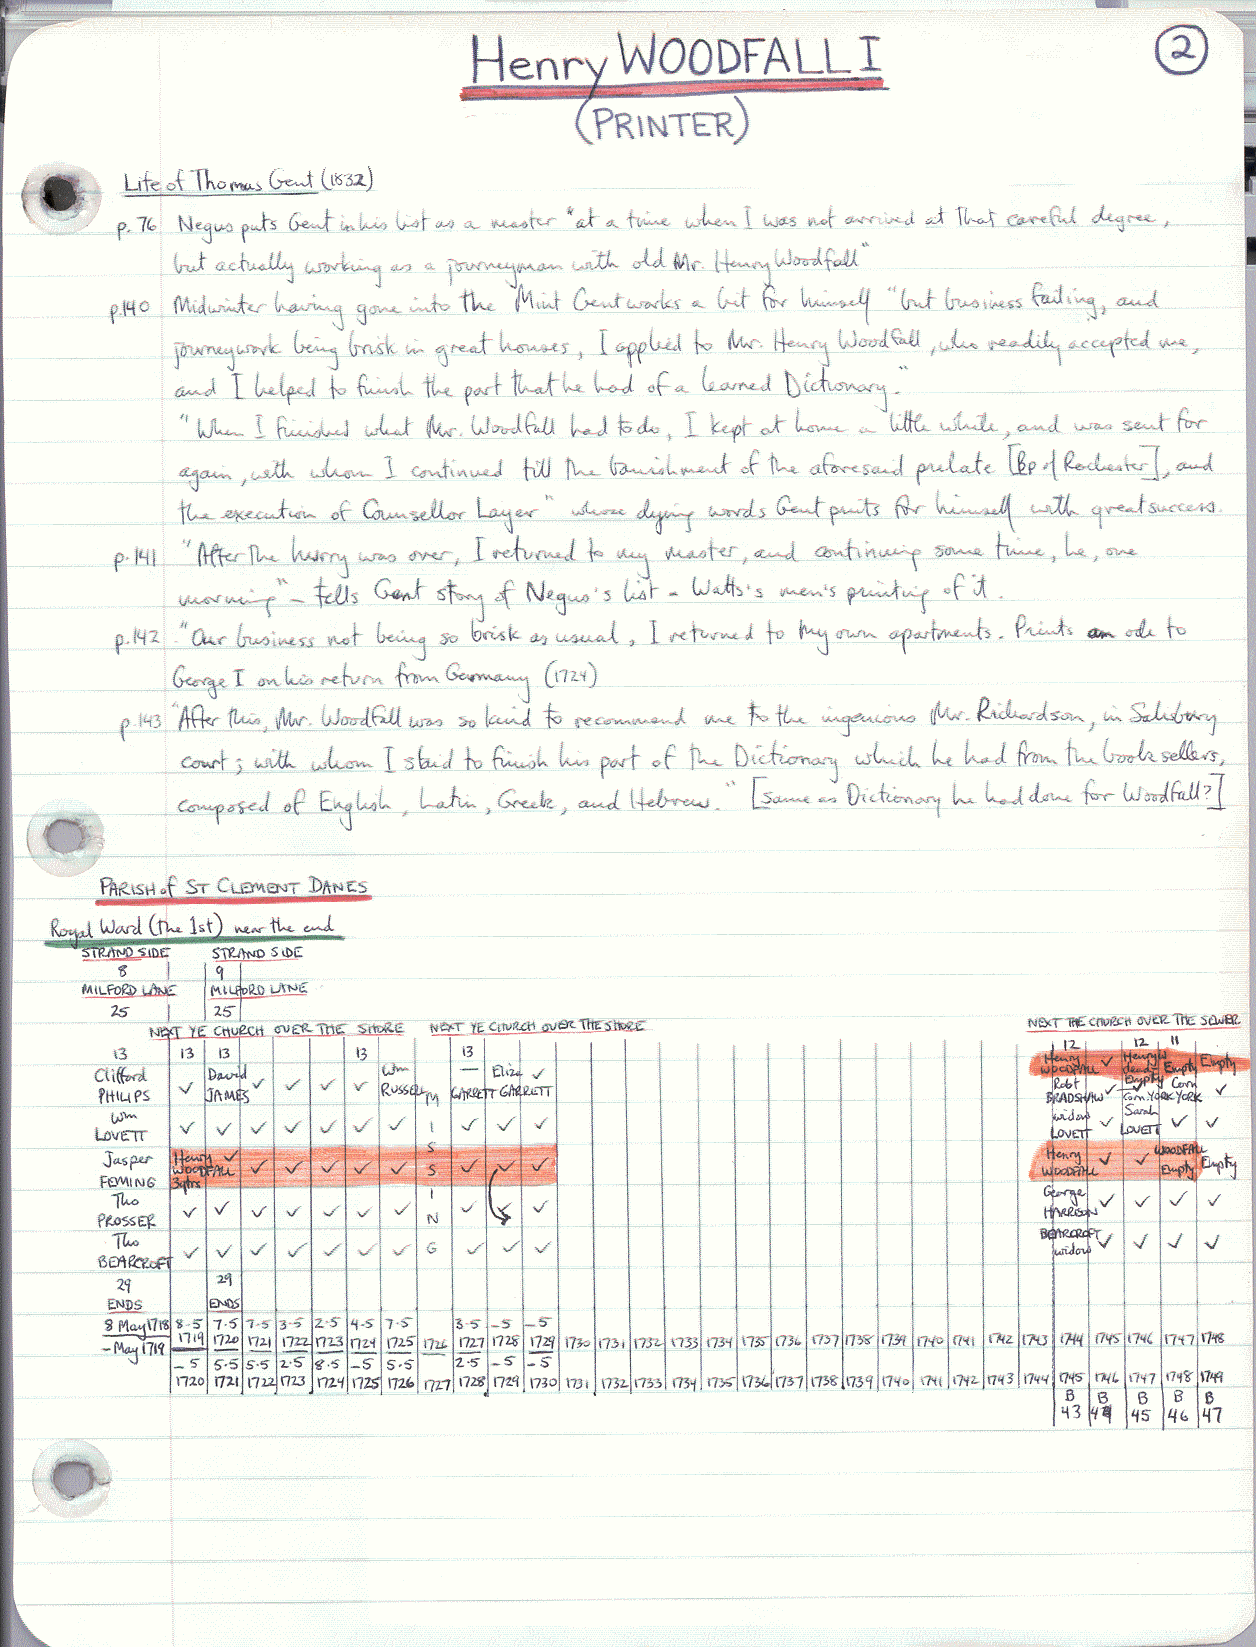 Henry WOODFALL I
2
(PRINTER)
Life of Thomas Gent (1832)
p. 76 Negus puts Gent in his list as a master "at a time when I was not arrived at that careful degree,
but actually working as a journeyman with old Mr. Henry Woodfall"
p.140 Midwinter having gone into the Mint Gent works a bit for himself "but business failing, and
journeywork being brisk in great houses, I applied to Mr. Henry Woodfall, who readily accepted me,
and I helped to finish the part that he had of a learned Dictionary."
"When I finished what Mr. Woodfall had to do, I kept at home a little while, and was sent for
again, with whom I continued till the banishment of the aforesaid prelate [Bp of Rochester], and
the execution of Counsellor Layer" whose dying words Gent prints for himself with great success.
p.141 "After the hurry was over, I returned to my master, and continuing some time, he, one
morning" – tells Gent story of Negus's list – Watts's men's printing of it.
p.142 "Our business not being so brisk as usual, I returned to my own apartments. Prints an ode to
George I on his return from Germany (1724)
p.143 "After this, Mr. Woodfall was so kind to recommend me to the ingenious Mr. Richardson, in Salisbury
court; with whom I staid to finish his part of the Dictionary which he had from the booksellers,
composed of English, Latin, Greek, and Hebrew." [same as Dictionary he had done for Woodfall?]
PARISH of ST CLEMENT DANES
Royal Ward (the 1st) near the end
STRAND SIDE STRAND SIDE
8 9
MILFORD LANE MILFORD LANE
25 25
NEXT YE CHURCH OVER THE SHORE NEXT YE CHURCH OVER THE SHORE NEXT THE CHURCH OVER THE SEWER
13 13 13 13 13 12 12 11
Clifford David Wm — Eliza ✓ Henry ✓ Henry W Empty Empty
PHILIPS ✓ JAMES ✓ ✓ ✓ ✓ RUSSELL M GARRETT GARRETT WOODFALL dead- Empty
Robt ✓ ✓ Corn ✓
BRADSHAW Corn. YORK YORK
Wm ✓ ✓ ✓ ✓ ✓ ✓ ✓ I ✓ ✓ ✓ widow ✓ Sarah ✓ ✓
LOVETT S LOVETT LOVETT
Jasper Henry ✓ ✓ ✓ ✓ ✓ ✓ S ✓ ✓ ✓ Henry ✓ ✓ WOODFALL Empty
FEMING WOODFALL 3qtrs WOODFALL Empty
Tho ✓ ✓ ✓ ✓ ✓ ✓ ✓ I ✓ ✓ ✓ George ✓ ✓ ✓ ✓
PROSSER N HARRISON
Tho ✓ ✓ ✓ ✓ ✓ ✓ ✓ G ✓ ✓ ✓ BEARCROFT ✓ ✓ ✓ ✓
BEARCROFT widow
29 29
ENDS ENDS
8 May 1718 8·5 7·5 7·5 3·5 2·5 4·5 7·5 3·5 –5 –5
– May 1719 1719 1720 1721 1722 1723 1724 1725 1726 1727 1728 1729 1730 1731 1732 1733 1734 1735 1736 1737 1738 1739 1740 1741 1742 1743 1744 1745 1746 1747 1748
–5 5·5 5·5 2·5 8·5 –5 5·5 2·5 –5 –5
1720 1721 1722 1723 1724 1725 1726 1727 1728 1729 1730 1731 1732 1733 1734 1735 1736 1737 1738 1739 1740 1741 1742 1743 1744 1745 1746 1747 1748 1749
B B B B B
43 44 45 46 47